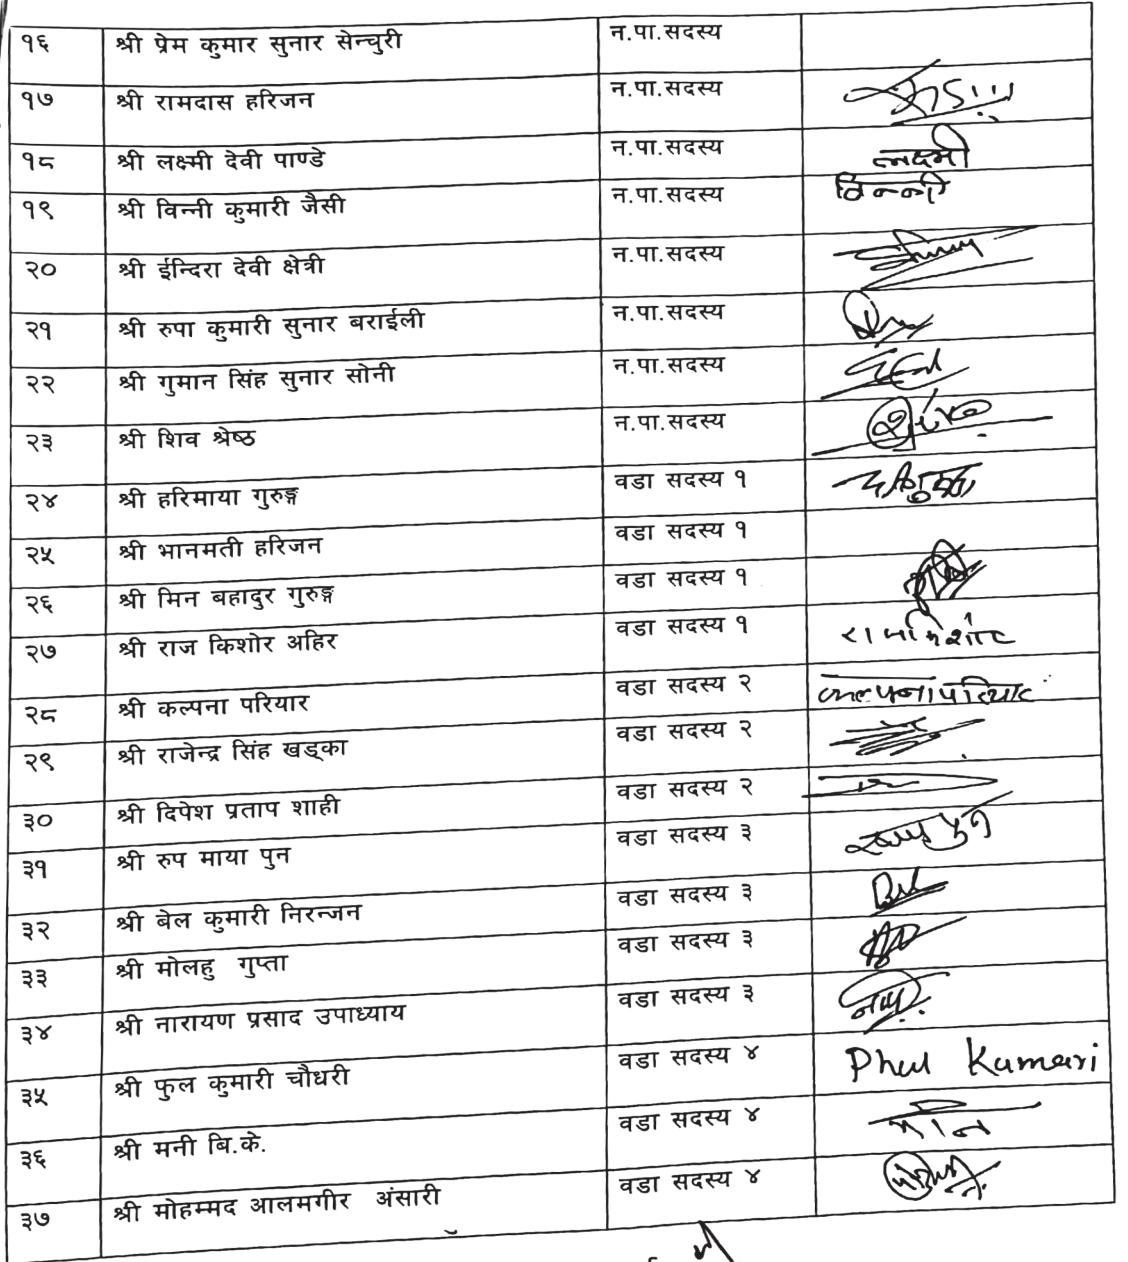 १६ श्री प्रेम कुमार सुनार सेन्चुरी न.पा.सदस्य
१७ श्री रामदास हरिजन न.पा.सदस्य
१८ श्री लक्ष्मी देवी पाण्डे न.पा.सदस्य लक्ष्मी
१९ श्री विन्नी कुमारी जैसी न.पा.सदस्य विन्नी
२० श्री ईन्दिरा देवी क्षेत्री न.पा.सदस्य
२१ श्री रुपा कुमारी सुनार बराईली न.पा.सदस्य
२२ श्री गुमान सिंह सुनार सोनी न.पा.सदस्य
२३ श्री शिव श्रेष्ठ न.पा.सदस्य
२४ श्री हरिमाया गुरुङ्ग वडा सदस्य १
२५ श्री भानमती हरिजन वडा सदस्य १
२६ श्री मिन बहादुर गुरुङ्ग वडा सदस्य १
२७ श्री राज किशोर अहिर वडा सदस्य १ राजकिशोर
२८ श्री कल्पना परियार वडा सदस्य २ कल्पना परियार
२९ श्री राजेन्द्र सिंह खड्का वडा सदस्य २
३० श्री दिपेश प्रताप शाही वडा सदस्य २
३१ श्री रुप माया पुन वडा सदस्य ३
३२ श्री बेल कुमारी निरन्जन वडा सदस्य ३
३३ श्री मोलहु गुप्ता वडा सदस्य ३
३४ श्री नारायण प्रसाद उपाध्याय वडा सदस्य ३
३५ श्री फुल कुमारी चौधरी वडा सदस्य ४ Phul Kumari
३६ श्री मनी बि.के. वडा सदस्य ४
३७ श्री मोहम्मद आलमगीर अंसारी वडा सदस्य ४